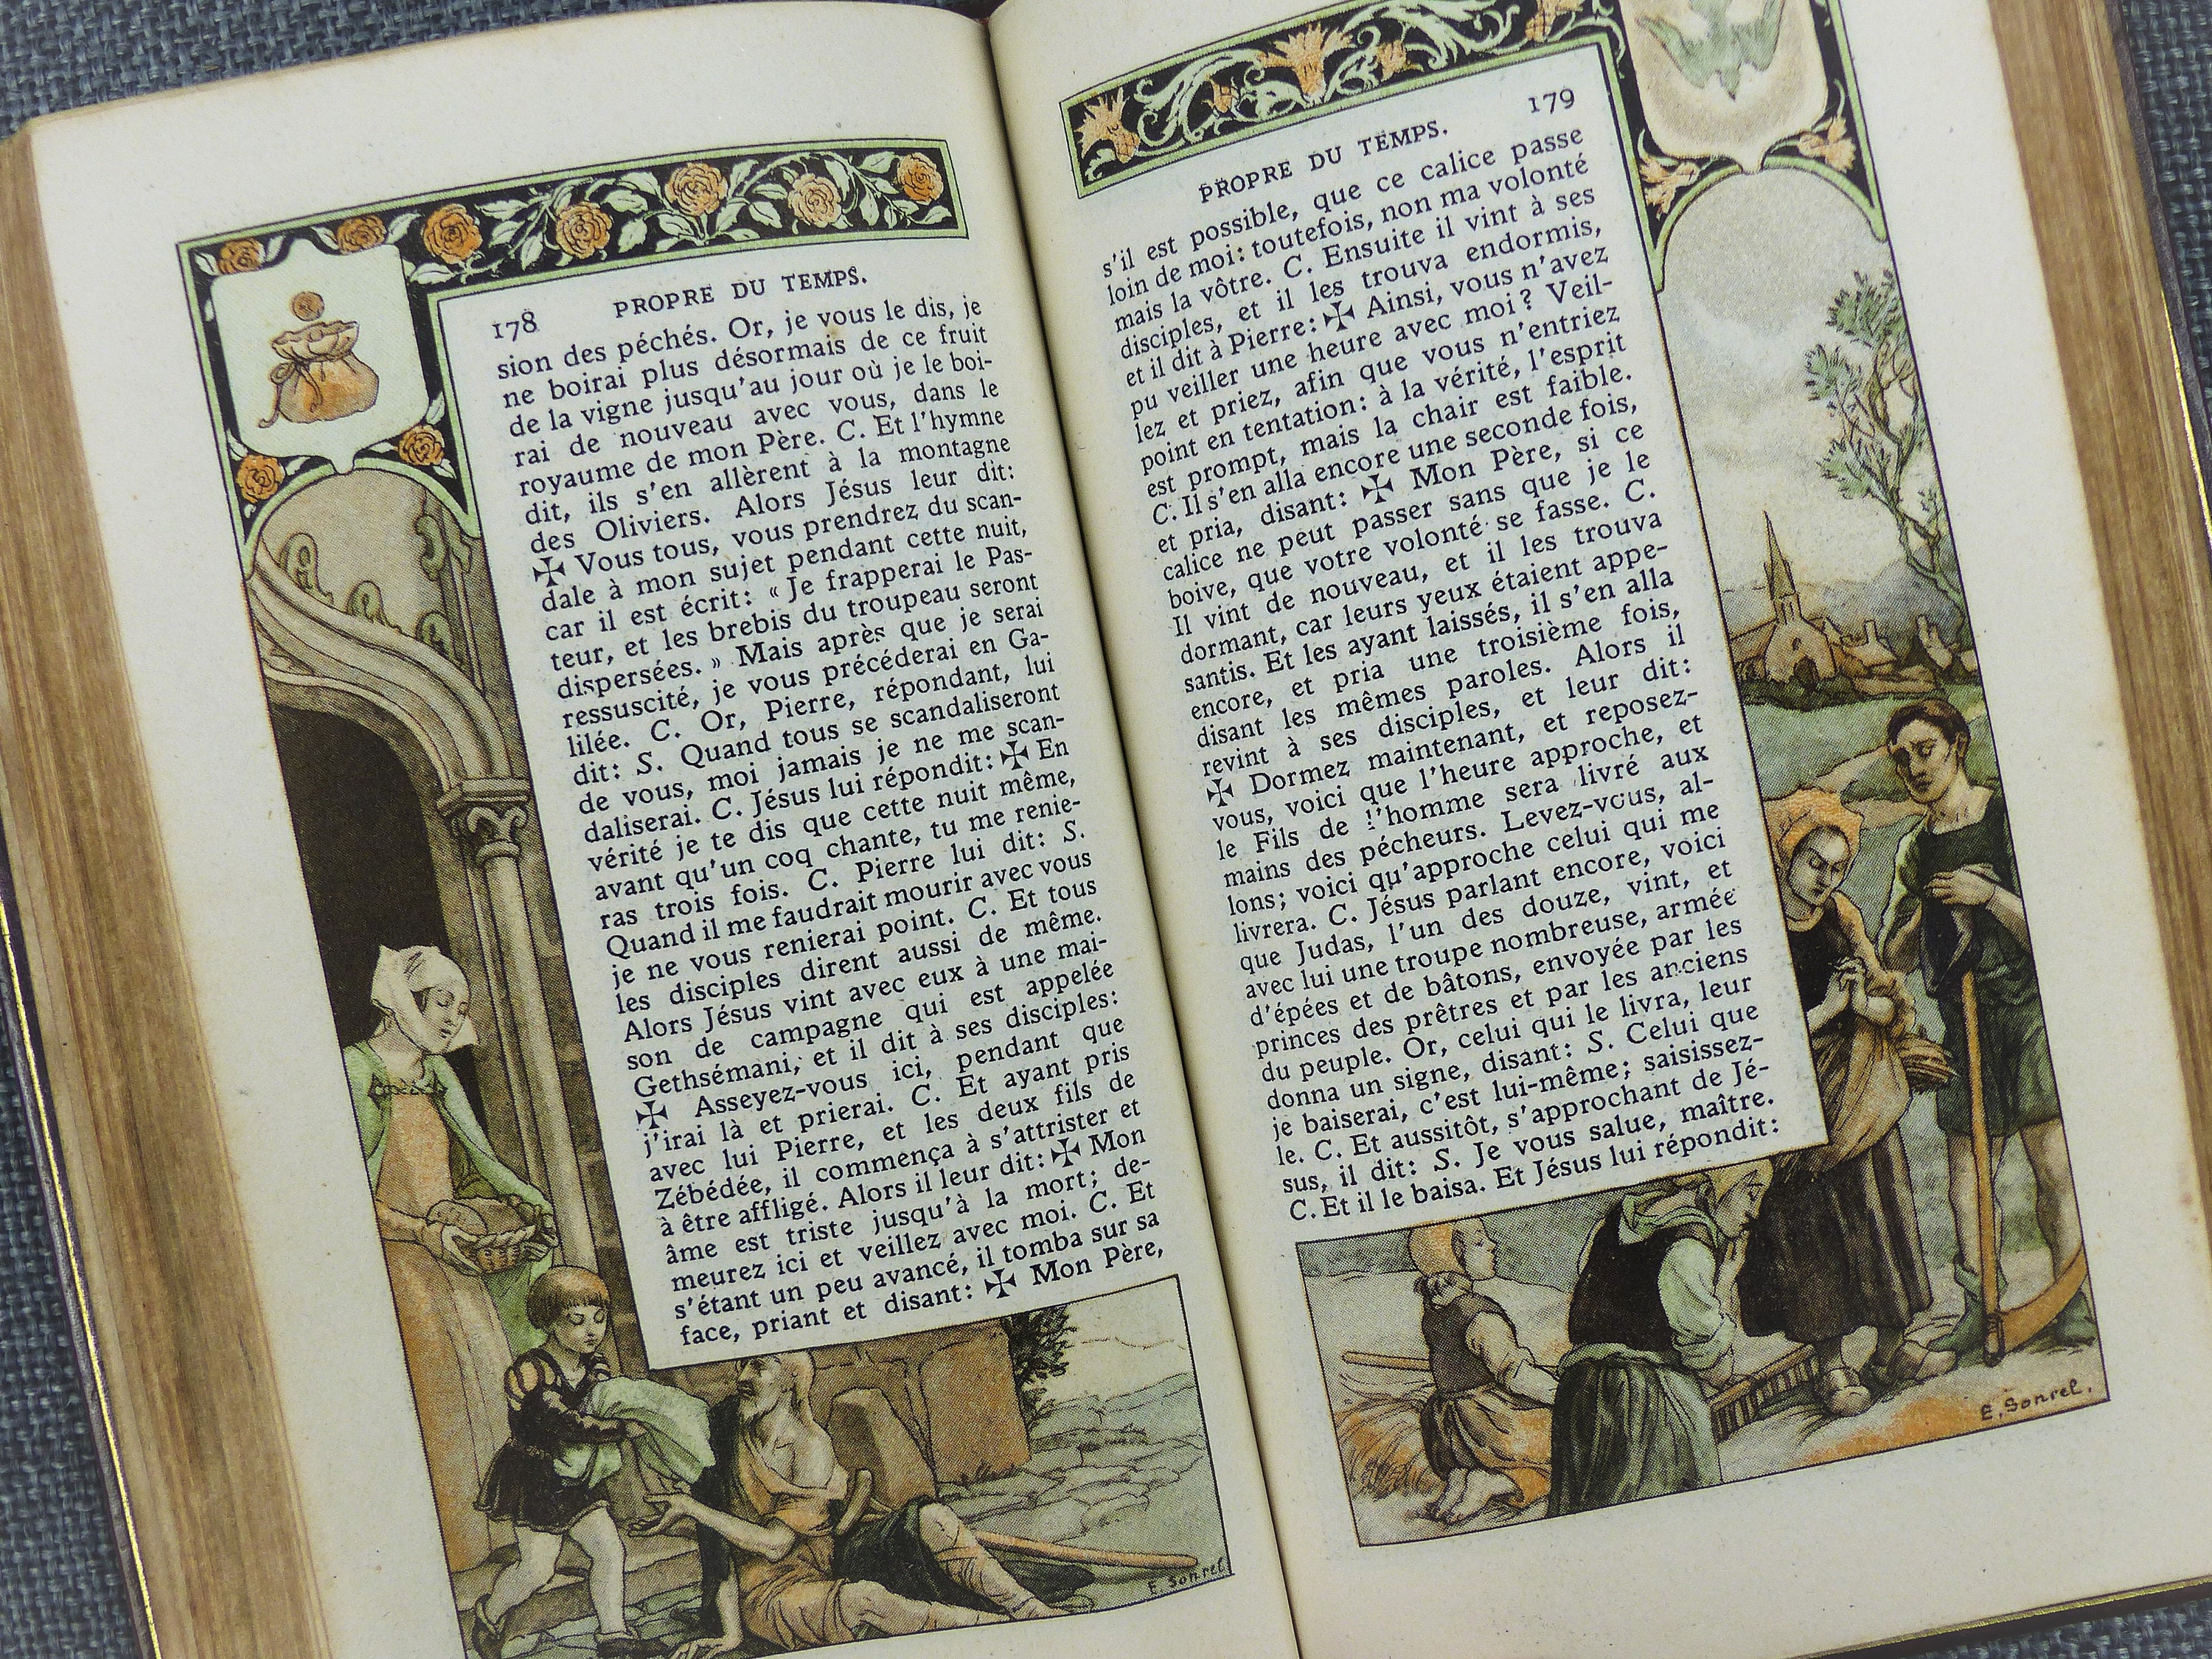 178 PROPRE DU TEMPS.
sion des péchés. Or, je vous le dis, je
ne boirai plus désormais de ce fruit
de la vigne jusqu'au jour où je le boi-
rai de nouveau avec vous, dans le
royaume de mon Père. C. Et l'hymne
dit, ils s'en allèrent à la montagne
des Oliviers. Alors Jésus leur dit:
✠ Vous tous, vous prendrez du scan-
dale à mon sujet pendant cette nuit,
car il est écrit: « Je frapperai le Pas-
teur, et les brebis du troupeau seront
dispersées. » Mais après que je serai
ressuscité, je vous précéderai en Ga-
lilée. C. Or, Pierre, répondant, lui
dit: S. Quand tous se scandaliseront
de vous, moi jamais je ne me scan-
daliserai. C. Jésus lui répondit: ✠ En
vérité je te dis que cette nuit même,
avant qu'un coq chante, tu me renie-
ras trois fois. C. Pierre lui dit: S.
Quand il me faudrait mourir avec vous
je ne vous renierai point. C. Et tous
les disciples dirent aussi de même.
Alors Jésus vint avec eux à une mai-
son de campagne qui est appelée
Gethsémani; et il dit à ses disciples:
✠ Asseyez-vous ici, pendant que
j'irai là et prierai. C. Et ayant pris
avec lui Pierre, et les deux fils de
Zébédée, il commença à s'attrister et
à être affligé. Alors il leur dit: ✠ Mon
âme est triste jusqu'à la mort; de-
meurez ici et veillez avec moi. C. Et
s'étant un peu avancé, il tomba sur sa
face, priant et disant: ✠ Mon Père,
E. Sonrel
PROPRE DU TEMPS. 179
s'il est possible, que ce calice passe
loin de moi: toutefois, non ma volonté
mais la vôtre. C. Ensuite il vint à ses
disciples, et il les trouva endormis,
et il dit à Pierre: ✠ Ainsi, vous n'avez
pu veiller une heure avec moi? Veil-
lez et priez, afin que vous n'entriez
point en tentation: à la vérité, l'esprit
est prompt, mais la chair est faible.
C. Il s'en alla encore une seconde fois,
et pria, disant: ✠ Mon Père, si ce
calice ne peut passer sans que je le
boive, que votre volonté se fasse. C.
Il vint de nouveau, et il les trouva
dormant, car leurs yeux étaient appe-
santis. Et les ayant laissés, il s'en alla
encore, et pria une troisième fois,
disant les mêmes paroles. Alors il
revint à ses disciples, et leur dit:
✠ Dormez maintenant, et reposez-
vous, voici que l'heure approche, et
le Fils de l'homme sera livré aux
mains des pécheurs. Levez-vous, al-
lons; voici qu'approche celui qui me
livrera. C. Jésus parlant encore, voici
que Judas, l'un des douze, vint, et
avec lui une troupe nombreuse, armée
d'épées et de bâtons, envoyée par les
princes des prêtres et par les anciens
du peuple. Or, celui qui le livra, leur
donna un signe, disant: S. Celui que
je baiserai, c'est lui-même; saisissez-
le. C. Et aussitôt, s'approchant de Jé-
sus, il dit: S. Je vous salue, maître.
C. Et il le baisa. Et Jésus lui répondit:
E. Sonrel.